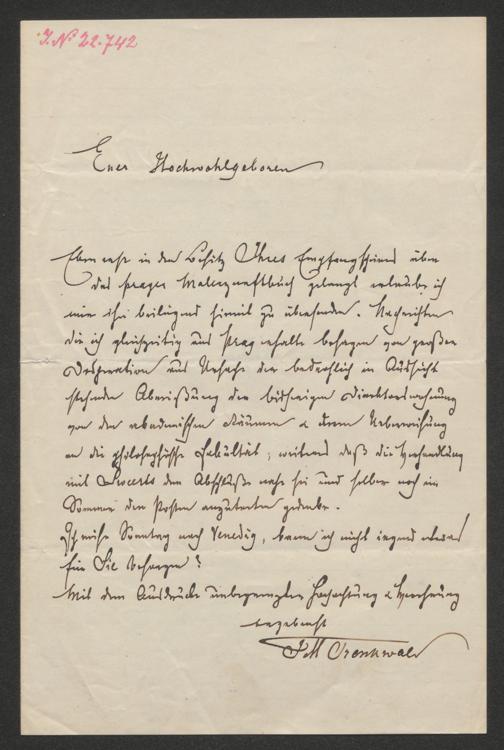 I. N. 22.742
Euer Hochwohlgeboren
Eben erst in den Besitz Ihres Empfangscheines über
das Prager Malerzunftbuch gelangt erlaube ich
mir ihn beiliegend hiemit zu übersenden. Nachrichten
die ich gleichzeitig aus Prag erhalte besagen von großer
Desperation aus Ursache der bedrohlich in Aussicht
stehenden der bisherigen Direktorswohnung
von den akademischen Räumen & deren Ueberweisung
an die philosophische Fakultät, weiters daß die Verhandlung
mit den Abschluße nahe sei und selber noch im
Sommer den Posten anzutreten gedenke.
Ich reise Sonntag nach Venedig, kann ich nicht irgend etwas
für Sie besorgen?
Mit dem Ausdrucke unbegrenzter Hochachtung & Verehrung
ergebenst
Trenkwald